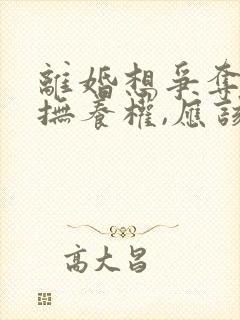 離婚想爭奪
撫養權,應該
高大昌